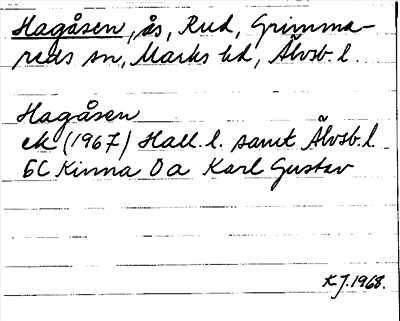 Hagåsen, ås, Rud, Grimma-
reds sn, Marks hd, Älvsb. l.
Hagåsen
ek (1967) Hall. l. samt Älvsb. l.
6C Kinna Oa Karl Gustav
K.J. 1968.